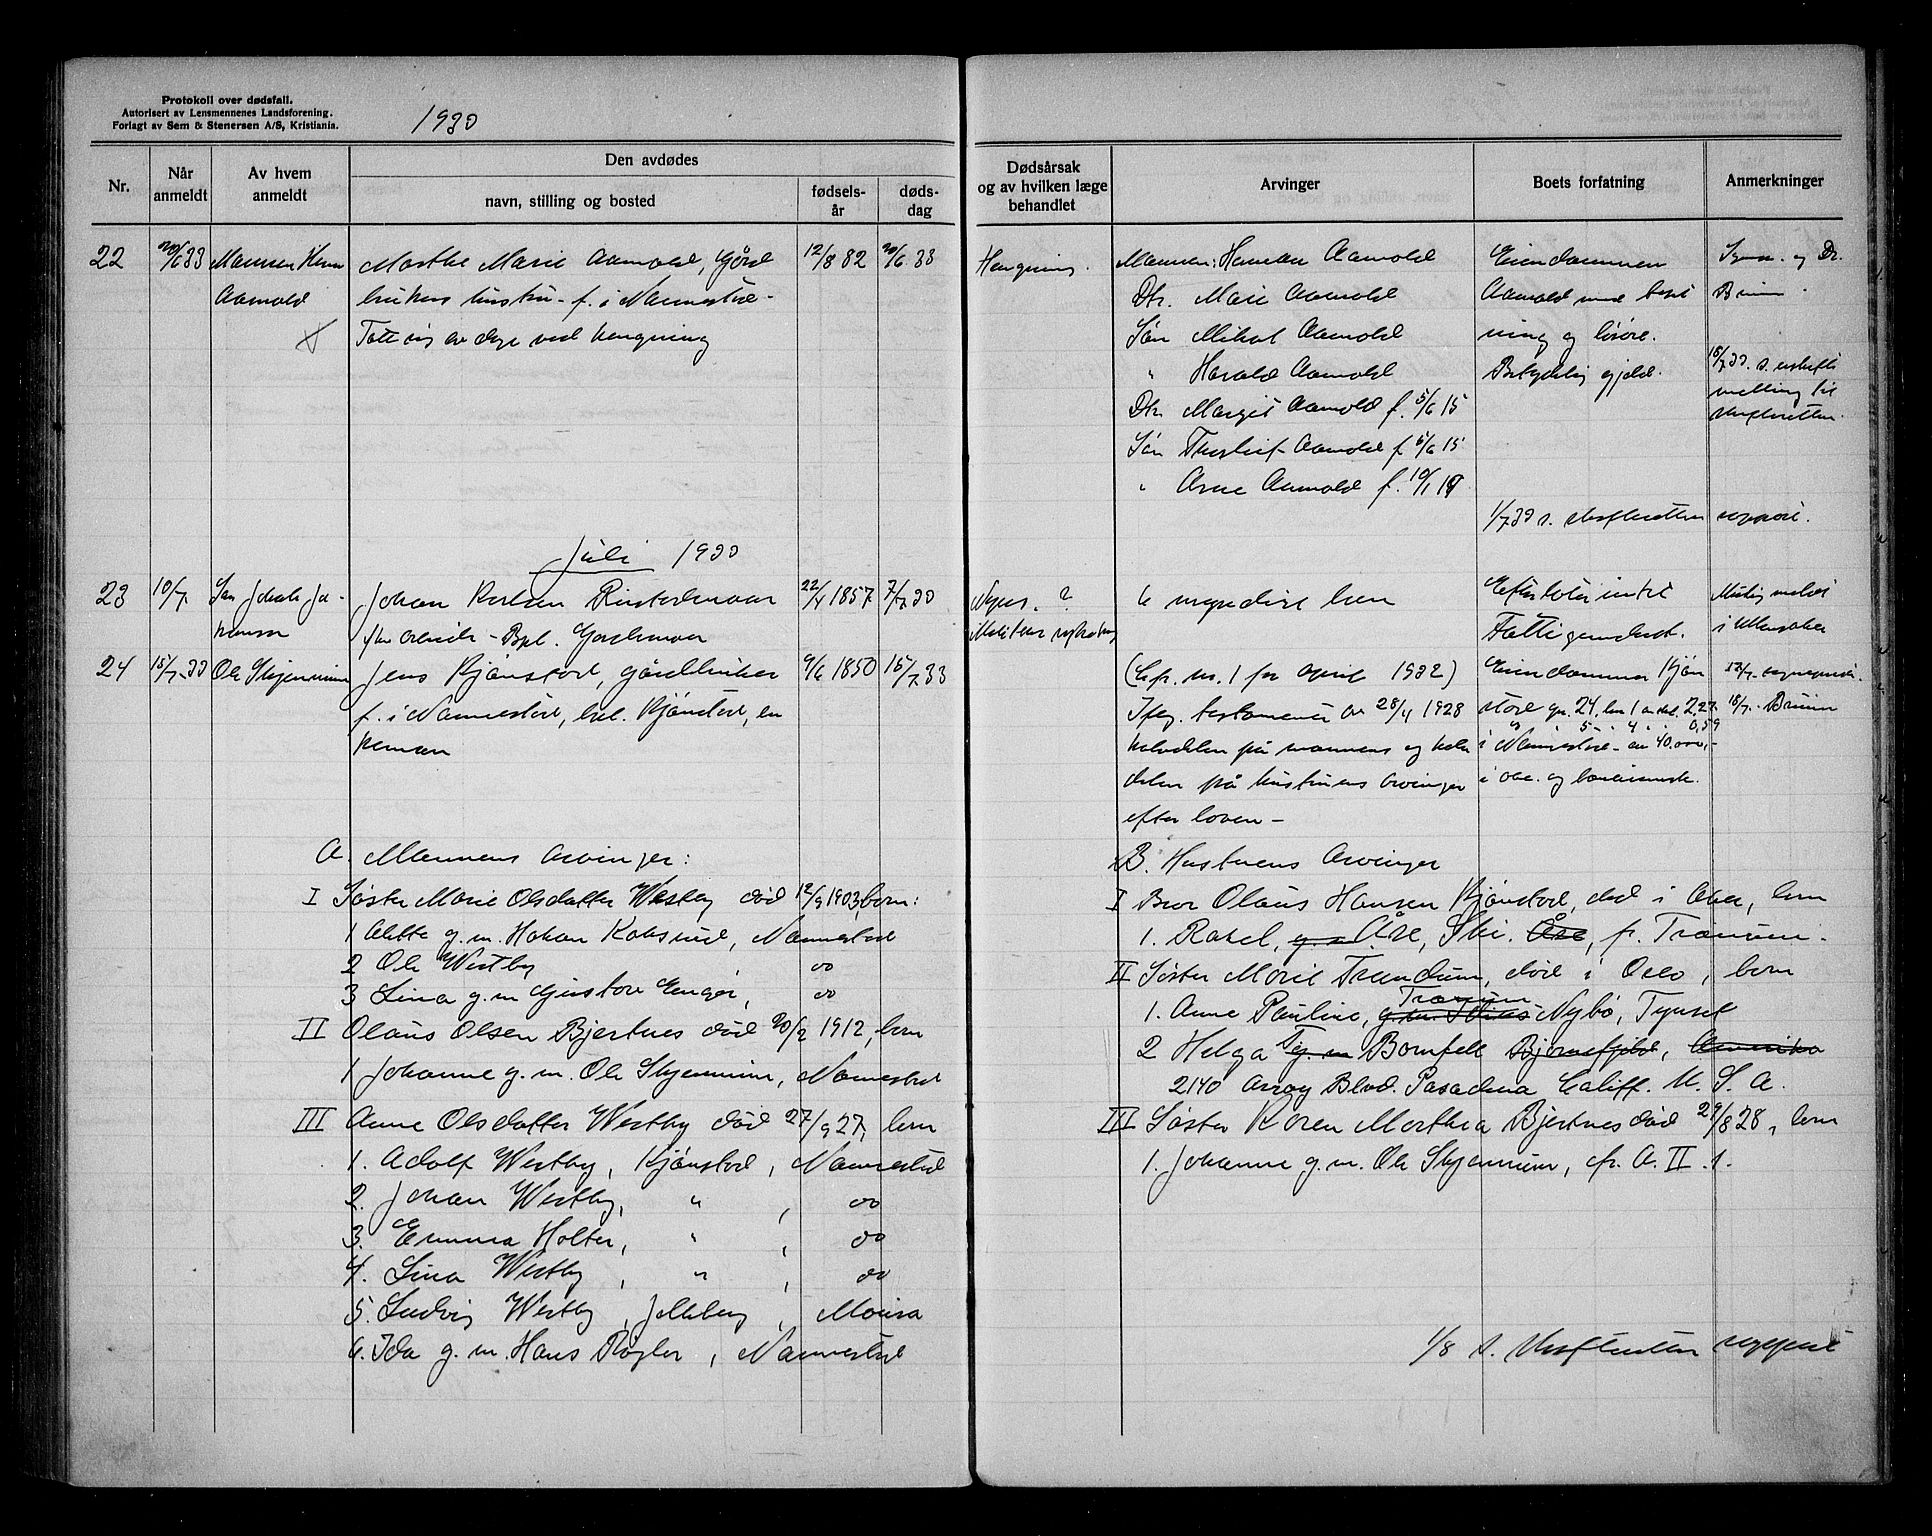 Protokoll over dødsfall.
Autorisert av Lensmennenes Landsforening.
Forlagt av Sem & Stenersen A/S, Kristiania.
1933
Nr.
Når anmeldt
Av hvem anmeldt
Den avdødes
navn, stilling og bosted
fødsels-år
døds-dag
Dødsårsak og av hvilken læge behandlet
Arvinger
Boets forfatning
Anmerkninger
22 20/6 33 Mannen Herm Aamold
Marthe Marie Aamold, gård
brukers hustru - f. i Nannestad -
Tatt sig av dage ved hengning
12/8 82 20/6 33
Hengning.
Mannen: Herman Aamold
Dtr. Marie Aamold
Søn Mikal Aamold
" Harald Aamold
Dtr. Margit Aamold f. 5/6 15
Søn Thorleif Aamold f 5/6 15
" Arne Aamold f. 10/1 19
Eiendommen
Aamold med beset
ning og løsøre.
Betydelig gjeld.
og Dr.
Bruun.
15/7 33. s.
melding til
skifteretten.
1/7 33 s. skifteretten rapport.
Juli 1933
23 10/7 Søn Johan Jo-
hansen
Johan Karlsen
22/4 1857 7/7 33
?
6 myndige barn
Efterlot intet
Fattigunderst.
i Ullensaker
24 15/7-33 Ole Skjennum
Jens Kjønstad, gårdbruker
f. i Nannestad, bos. Kjønstad, en
kemann
9/6 1850 15/7 33
(Cfr. nr. 1 for april 1932)
Iføg. testamente av 28/4 1928
halvdelen på mannens og halv
delen på hustruens arvinger
efter loven -
Eiendommen Kjøn
stad gr. 24, bn 1 av skl. 2,27
" " 5 " 4 " 0,59
i Nannestad - av 40.000,-
i obl. og bankinnsk.
18/7. Bruun
A. Mannens Arvinger:
I Søster Marie Olsdatter Westby død 12/9 1903, barn:
1 Alette g.m. Hakan Kobsrud, Nannestad
2 Ole Westby do
3 Lina g.m Gustav Enger, do
II Olaus Olsen Bjertnes død 20/2 1912, barn
1 Johanne g.m. Ole Skjennum, Nannestad
III Anne Olsdatter Westby død 27/9 27, barn
1. Adolf Westby, Kjønstad, Nannestad
2. Johan Westby, " , do
3. Emma Holter, " , do
4. Lina Westby, " , do
5. Ludvig Westby, Jelleberg, Moura
6. Ida g.m. Hans Røgler, Nannestad
B. Hustruens Arvinger
I Bror Olaus Hansen Kjønstad, død i Oslo, barn
1. Rakel, g.m Åse, Ski. Åse, f.
II Søster Marie Trandum, død i Oslo, barn
1. Anne Pauline, g.m. Nybø, Tynset
2 Helga g.m Bomfell Bjørnefjeld, Amerika
2140 Arroy Blvd. Pasadena Califf. U. S. A.
III Søster Karen Marthea Bjertnes død 29/8 28, barn
1. Johanne g.m. Ole Skjennum, cfr. A. II. 1.
1/8 s. skifteretten rapport